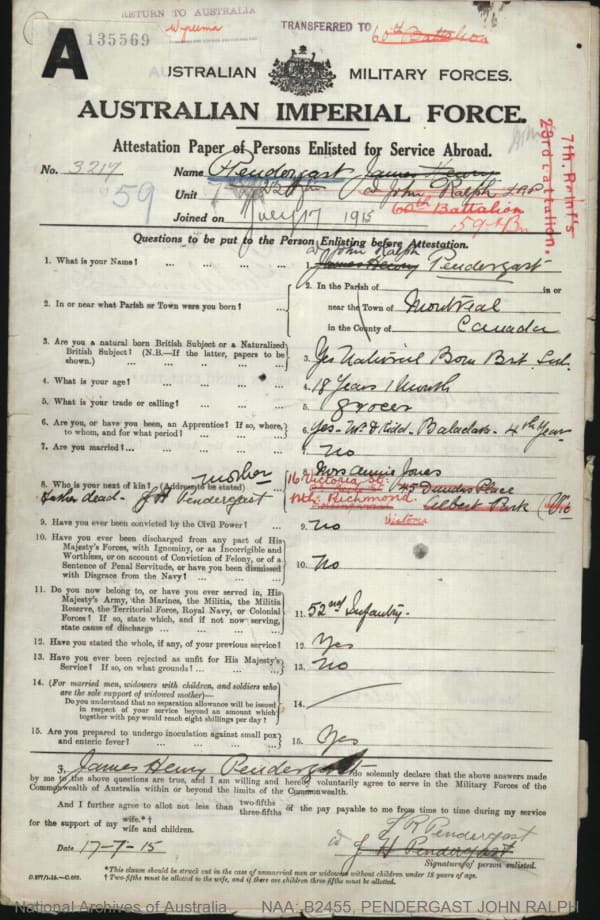 RETURN TO AUSTRALIA
Wyreema
135569
TRANSFERRED TO
60th Battalion
AUSTRALIAN MILITARY FORCES.
AUSTRALIAN IMPERIAL FORCE.
Attestation Paper of Persons Enlisted for Service Abroad.
No. 3217 Name Pendergast James Henry
59 Unit 7 22 John Ralph
60th Battalion
59th Bn
Joined on July 17 1915
7th. Reinf's
23rd Battalion.
Questions to be put to the Person Enlisting before Attestation.
John Ralph
1. What is your Name? ... 1. James Henry Pendergast
2. In or near what Parish or Town were you born? ... 2. In the Parish of in or
near the Town of Montreal
in the County of Canada
3. Are you a natural born British Subject or a Naturalized
British Subject? (N.B.—If the latter, papers to be
shown.) ... 3. Yes National Born Brit. Sub.
4. What is your age? ... 4. 18 Years 1 Month
5. What is your trade or calling? ... 5. grocer
6. Are you, or have you been, an Apprentice? If so, where,
to whom, and for what period? ... 6. Yes - Balaclava - 4th Year
7. Are you married? ... 7. No
8. Who is your next of kin? (Address to be stated) mother
father dead - J H Pendergast
8. Mrs Annie Jones
16 Victoria St.
45 Dundas Place
Nth. Richmond
Albert Park (Vic
Victoria
9. Have you ever been convicted by the Civil Power? ... 9. No
10. Have you ever been discharged from any part of His
Majesty's Forces, with Ignominy, or as Incorrigible and
Worthless, or on account of Conviction of Felony, or of a
Sentence of Penal Servitude, or have you been dismissed
with Disgrace from the Navy? ... 10. No
11. Do you now belong to, or have you ever served in, His
Majesty's Army, the Marines, the Militia, the Militia
Reserve, the Territorial Force, Royal Navy, or Colonial
Forces? If so, state which, and if not now serving,
state cause of discharge ... 11. 52nd Infantry.
12. Have you stated the whole, if any, of your previous service? 12. Yes
13. Have you ever been rejected as unfit for His Majesty's
Service? If so, on what grounds? ... 13. No
14. (For married men, widowers with children, and soldiers who
are the sole support of widowed mother)—
Do you understand that no separation allowance will be issued
in respect of your service beyond an amount which
together with pay would reach eight shillings per day? 14.
15. Are you prepared to undergo inoculation against small pox
and enteric fever? ... 15. Yes
3. James Henry Pendergast do solemnly declare that the above answers made
by me to the above questions are true, and I am willing and hereby voluntarily agree to serve in the Military Forces of the
Commonwealth of Australia within or beyond the limits of the Commonwealth.
And I further agree to allot not less than two-fifths three-fifths of the pay payable to me from time to time during my service
for the support of my wife.*† wife and children.
J R Pendergast
J H Pendergast
Date 17-7-15 Signature of person enlisted.
*This clause should be struck out in the case of unmarried men or widowers without children under 18 years of age.
† Two-fifths must be allotted to the wife, and if there are children three-fifths must be allotted.
National Archives of Australia NAA: B2455, PENDERGAST JOHN RALPH